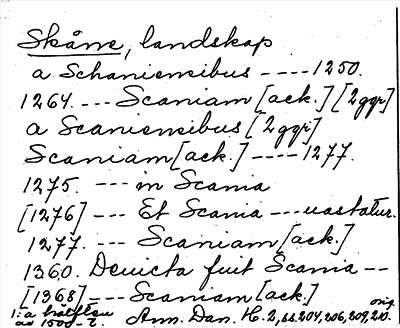 Skåne, landskap
a Schaniensibus ---- 1250.
1264. --- Scaniam [ack.] [2 ggr]
a Scaniensibus [2 ggr]
Scaniam [ack.] ---- 1277.
1275. --- in Scania
[1276] --- Et Scania --- uastatur.
1277. --- Scaniam [ack.]
1360. Deuicta fuit Scania --
[1368] --- Scaniam [ack.]
orig.
1:a hälften
av 1500-t. Ann. Dan. H. 2, ss. 204, 206, 209, 210.